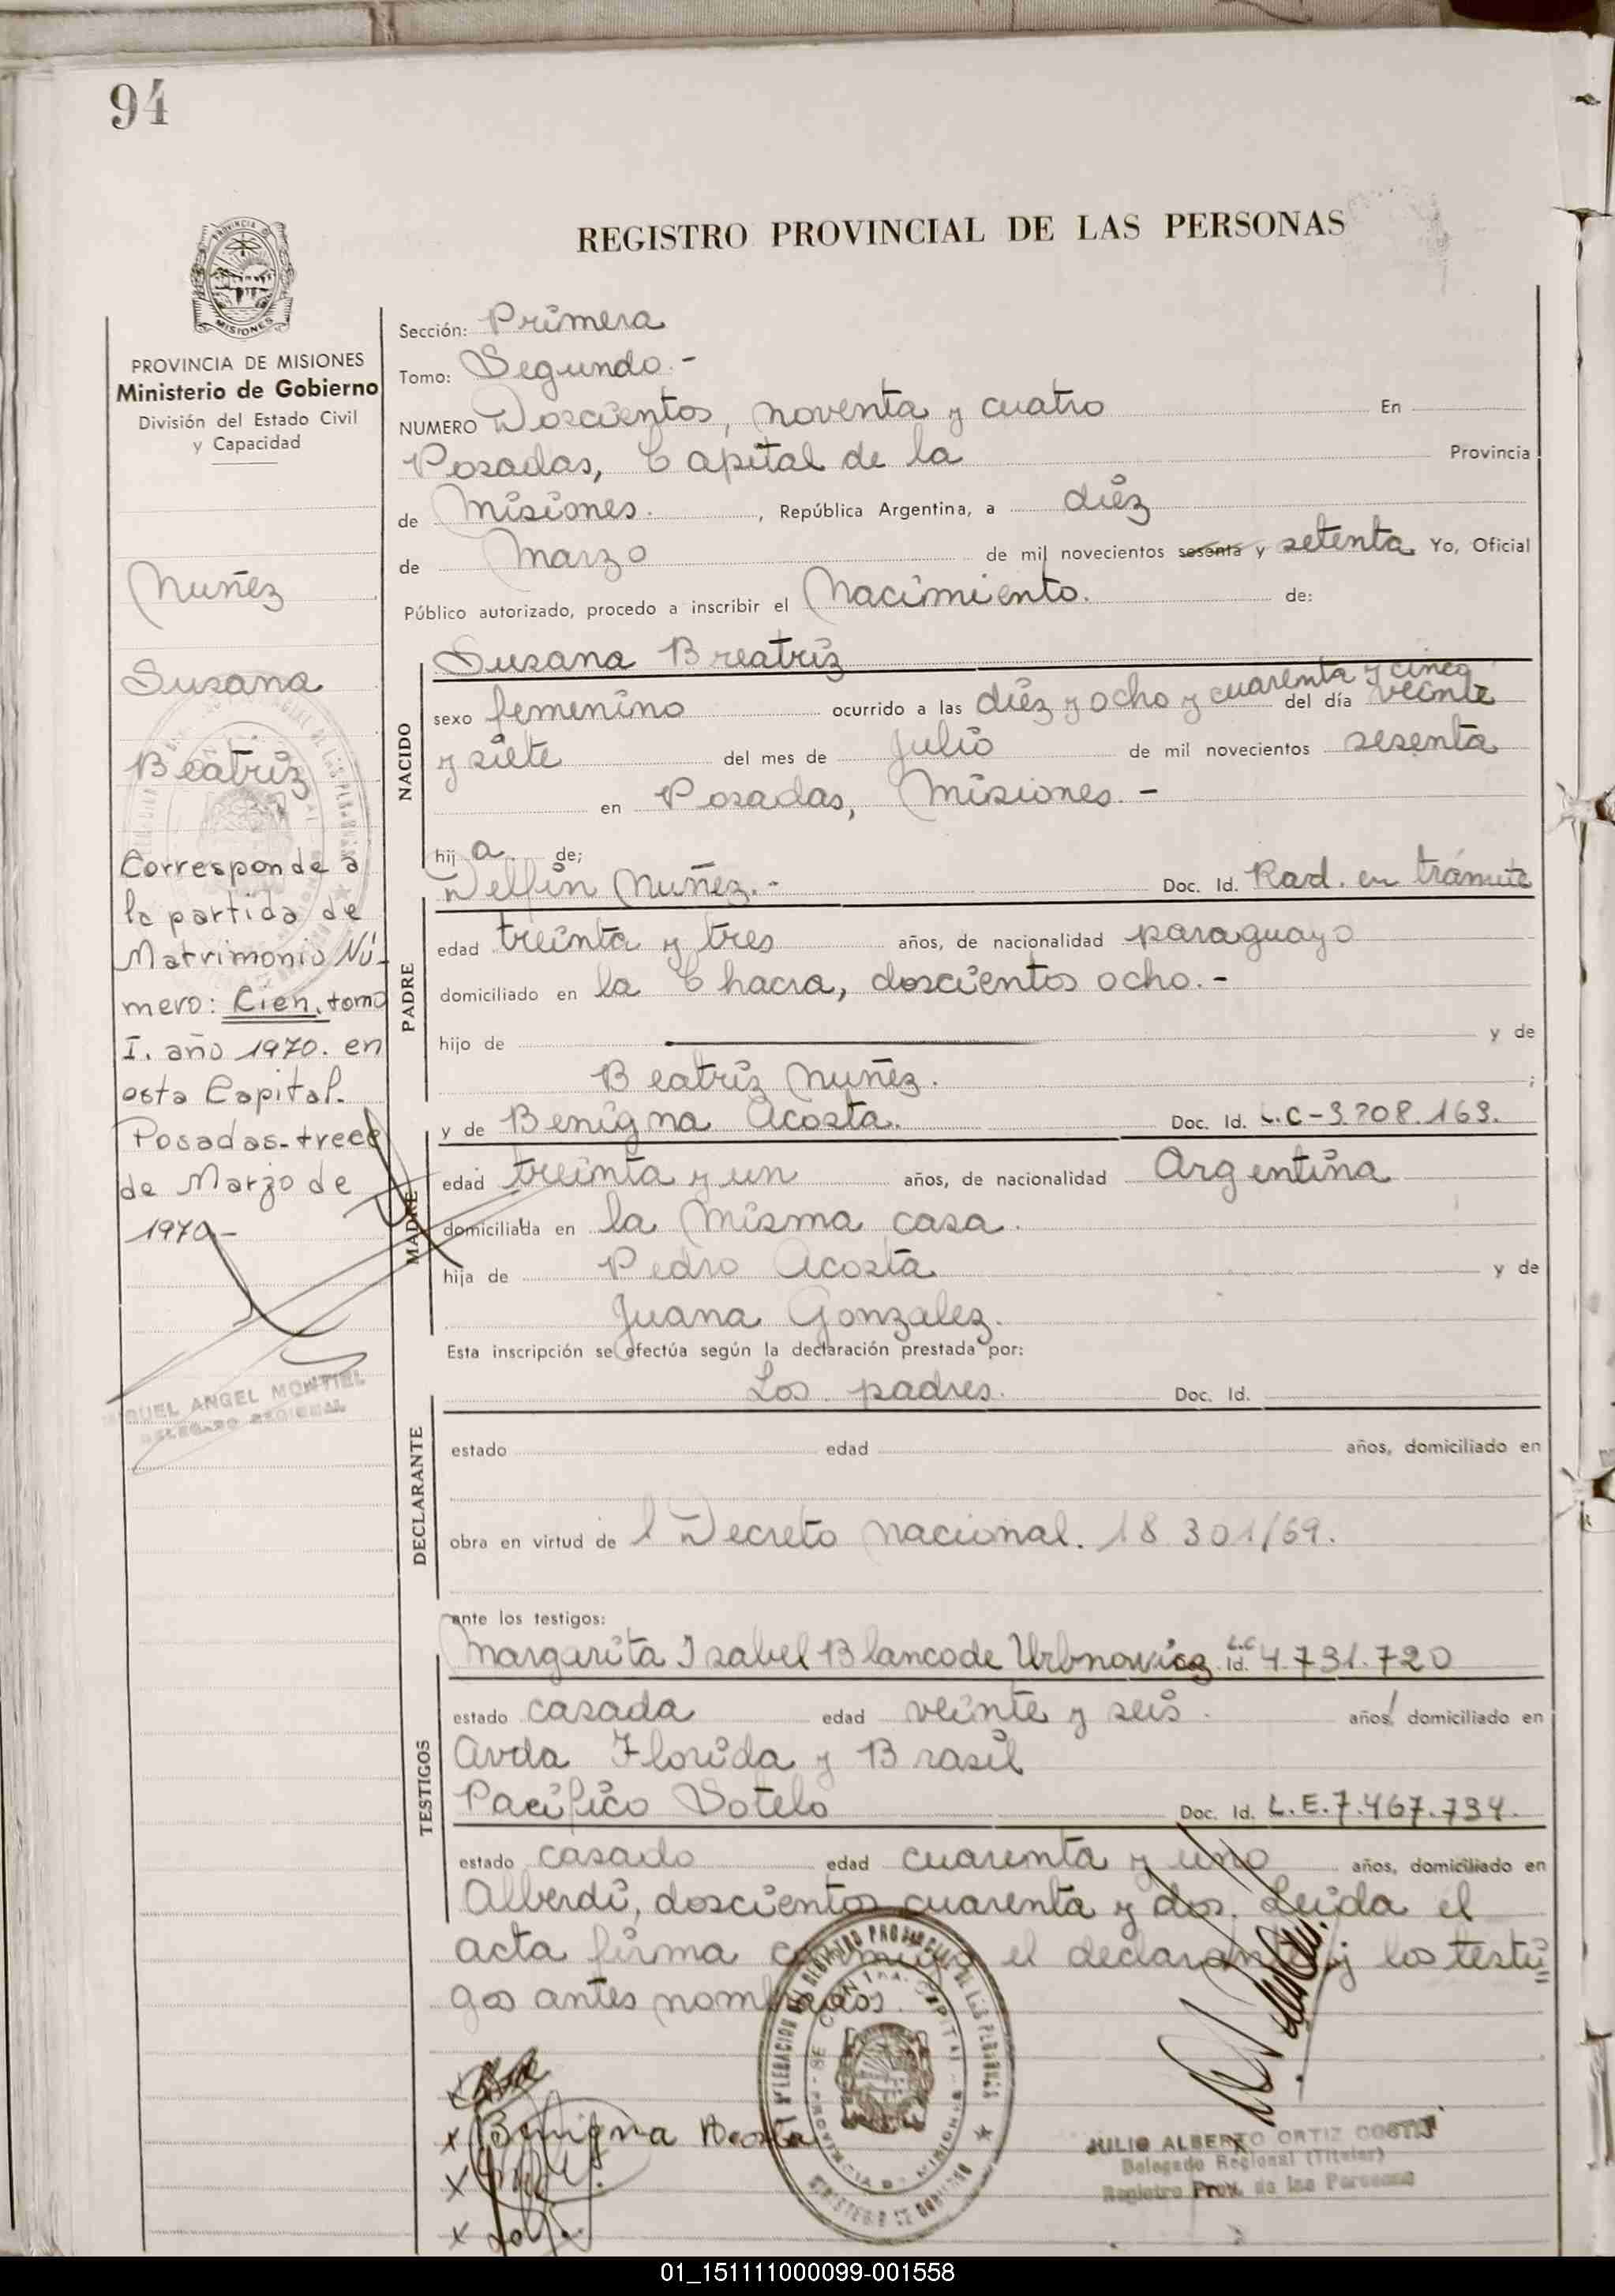 94
REGISTRO PROVINCIAL DE LAS PERSONAS
PROVINCIA DE MISIONES
Ministerio de Gobierno
División del Estado Civil
y Capacidad
Nuñez
Susana
Beatriz
Corresponde a
la partida de
Matrimonio Nú-
mero: Cien, tomo
I. año 1970. en
esta Capital.
Posadas-trece
de Marzo de
1970.-
MIGUEL ANGEL MONTIEL
DELEGADO REGIONAL
Sección: Primera
Tomo: Segundo.-
NUMERO Doscientos, noventa y cuatro En
Posadas, Capital de la Provincia
de Misiones. , República Argentina, a diéz
de Marzo de mil novecientos sesenta y setenta Yo, Oficial
Público autorizado, procedo a inscribir el Nacimiento. de:
NACIDO
Susana Beatriz
sexo femenino ocurrido a las diéz y ocho y cuarenta y cinco del día veinte
y siete del mes de Julio de mil novecientos sesenta
en Posadas, Misiones.-
hij a. de;
PADRE
Delfín Nuñez.- Doc. Id. Rad. en trámite
edad treinta y tres años, de nacionalidad paraguayo
domiciliado en la Chacra, doscientos ocho.-
hijo de y de
Beatriz Nuñez. ;
MADRE
y de Benigna Acosta. Doc. Id. L.C-3.708.163.
edad treinta y un años, de nacionalidad Argentina
domiciliada en la Misma casa.
hija de Pedro Acosta y de
Juana Gonzalez.
Esta inscripción se efectúa según la declaración prestada por:
DECLARANTE
Los padres. Doc. Id.
estado edad años, domiciliado en
obra en virtud de l Decreto Nacional. 18.301/69.
ante los testigos:
TESTIGOS
Margarita Isabel Blanco de Urbnowicz L.C Id. 4.731.720
estado casada edad veinte y seis. años, domiciliado en
Avda Florida y Brasil
Pacífico Sotelo Doc. Id. L.E.7.467.734.
estado casado edad cuarenta y uno años, domiciliado en
Alberdi, doscientos cuarenta y dos. Leida el
acta firma conmigo el declarante y los testi=
gos antes nombrados.
Benigna Acosta
JULIO ALBERTO ORTIZ COSTA
Delegado Regional (Titular)
Registro Prov. de las Personas
01_151111000099-001558